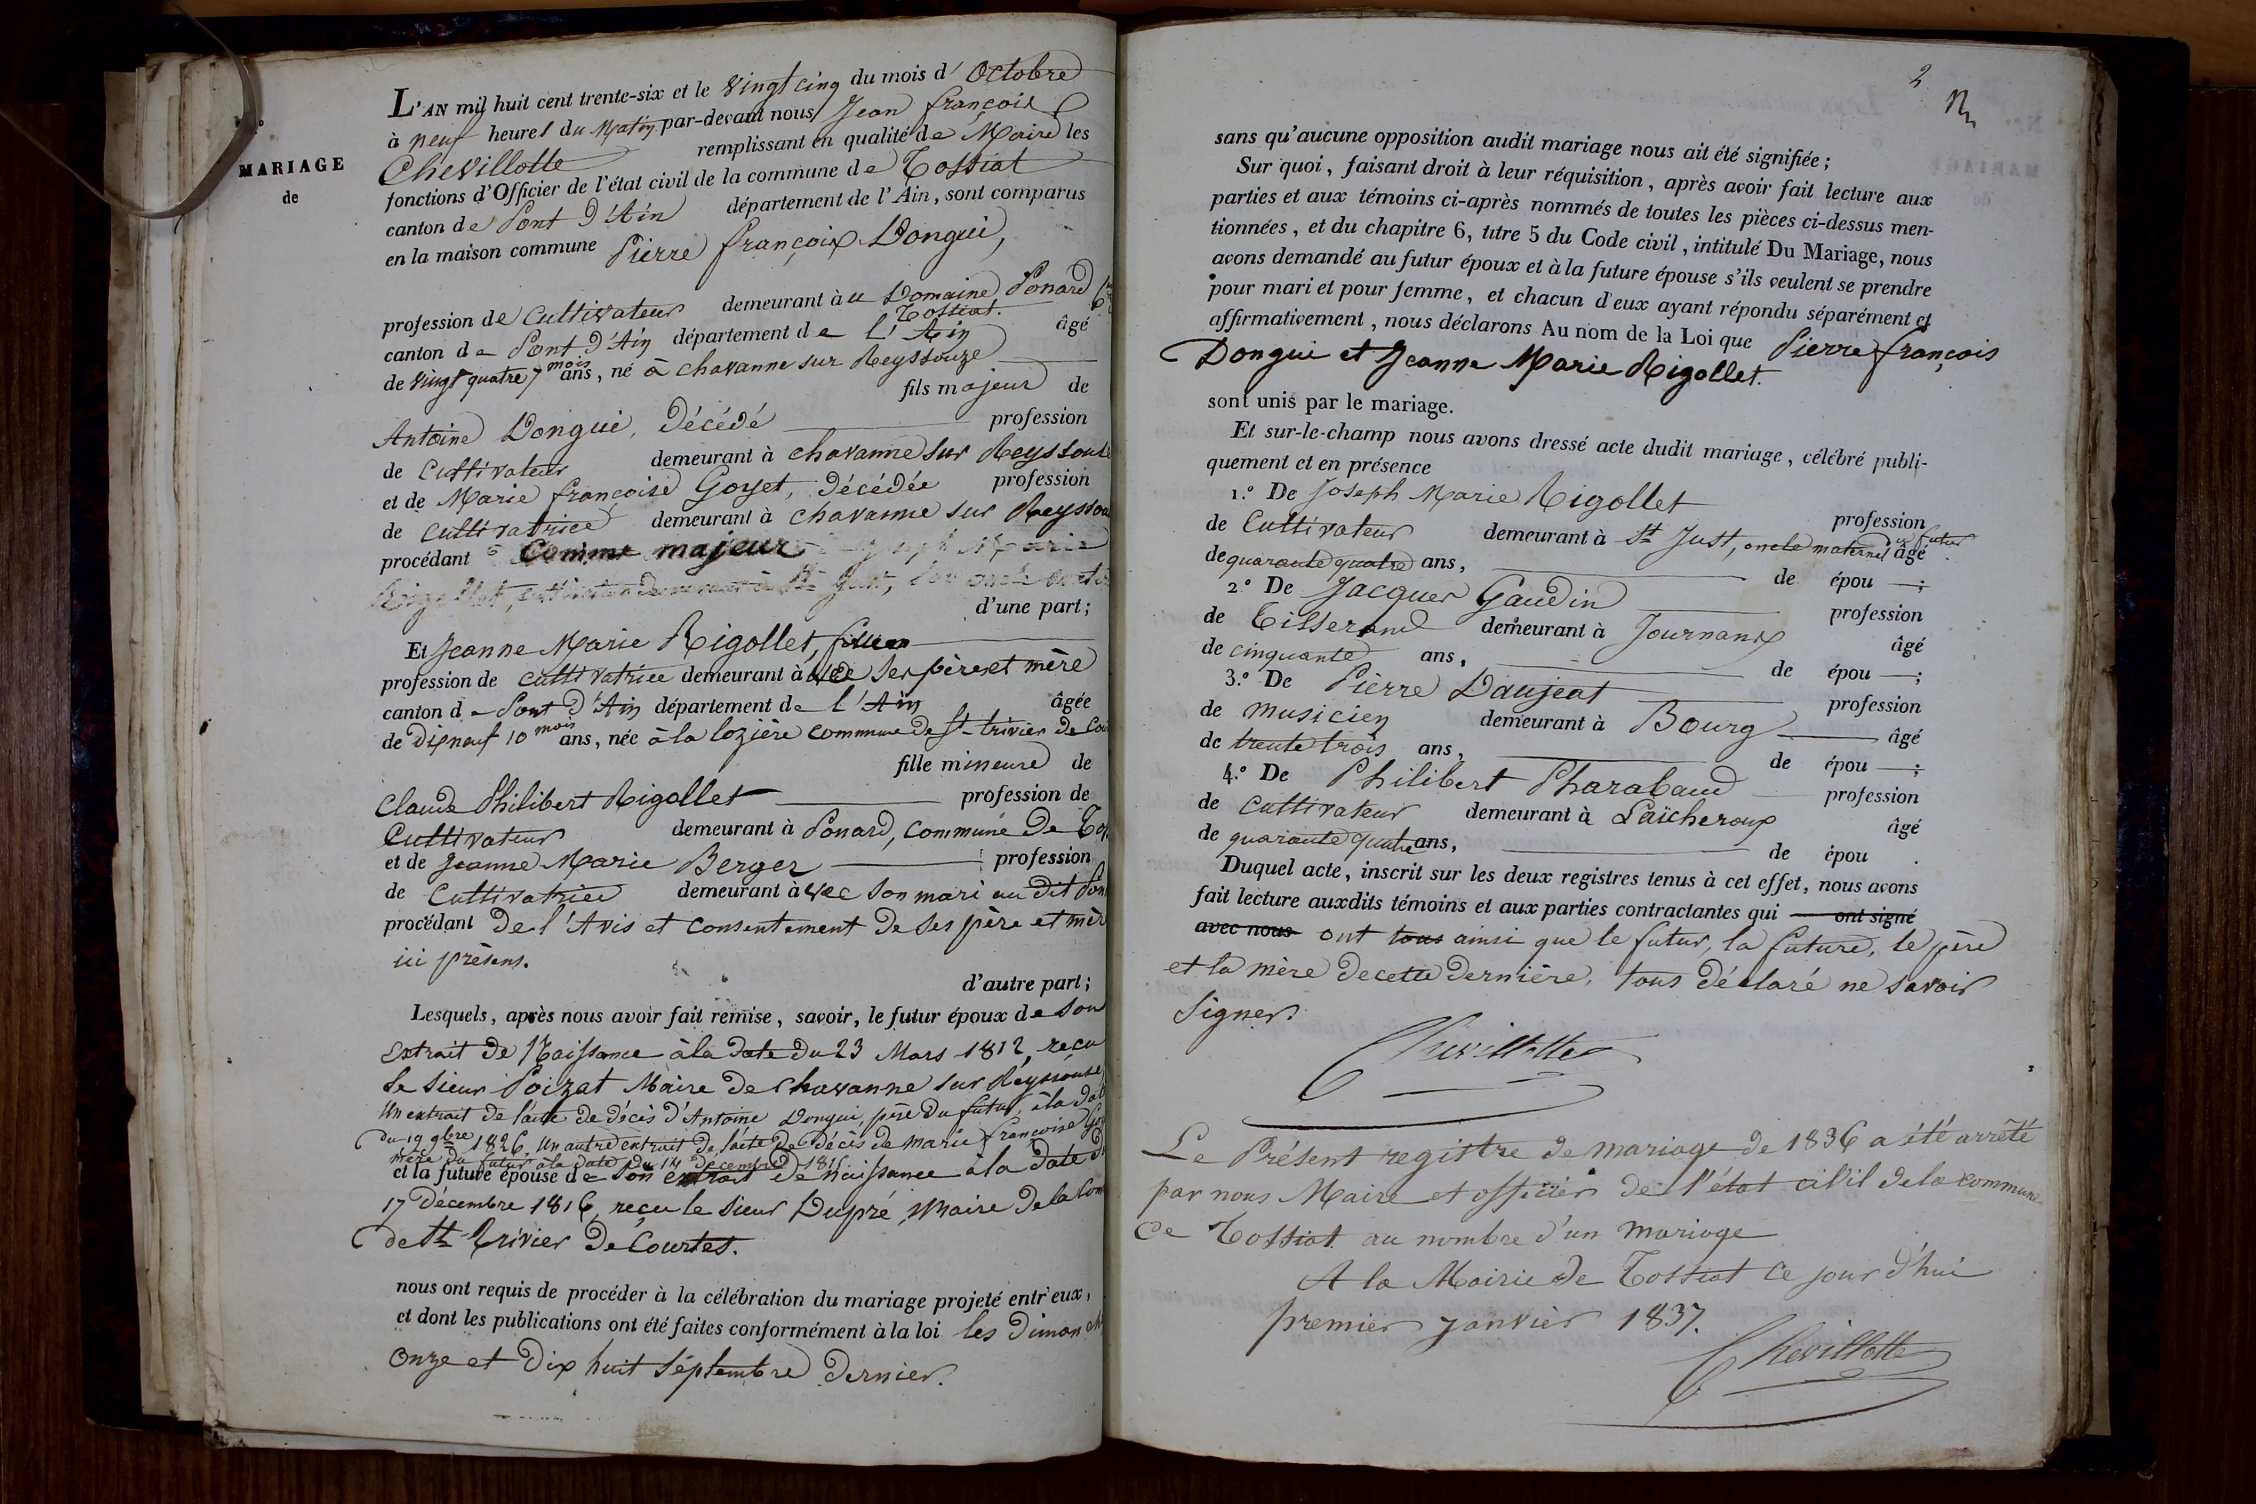 MARIAGE
de
L'AN mil huit cent trente-six et le vingt cinq du mois d' Octobre
à neuf heures du Matin par-devant nous Jean françois
Chevillotte remplissant en qualité de Maire les
fonctions d'Officier de l'état civil de la commune de Tossiat
canton de Pont d'Ain département de l'Ain, sont comparus
en la maison commune Pierre françois Dongui,
profession de Cultivateur demeurant à u Domaine Ponard
Tossiat.
canton de Pont d'Ain département de l'Ain âgé
de vingt quatre 7 mois ans, né à chavanne sur Reyssouze
fils majeur de
Antoine Dongui, Décédé profession
de Cultivateur demeurant à chavanne sur Reyssouze
et de Marie françoise Goyet, Décédée profession
de Cultivatrice demeurant à chavanne sur Reyssou
procédant Comme majeur
d'une part;
Et Jeanne Marie Rigollet, fille
profession de cultivatrice demeurant à vec ses père et mère
canton de Pont d'Ain département de l'Ain âgée
de Dix neuf 10 mois ans, née à la lozière commune de St trivier de Cou
fille mineure de
Claude Philibert Rigollet profession de
Cultivateur demeurant à Ponard, commune De Tos
et de Jeanne Marie Berger profession
de Cultivatrice demeurant à vec son mari au dit Pon
procédant de l'Avis et consentement De ses père et mèr
ici présens.
d'autre part;
Lesquels, après nous avoir fait remise, savoir, le futur époux de son
extrait de Naissance à la date du 23 Mars 1812, reçu
le sieur Poizat Maire de Chavanne sur Reyssouse,
Un extrait de l'acte de décès d'Antoine Dongui, père du futur, à la dat
du 19 9bre 1826, Un autre extrait de l'acte de décès de marie françoise Go
mère du futur à la date du 14 decembre
et la future épouse de son extrait de naissance à la date d
17 Décembre 1816, reçu le sieur Dupré, Maire de la Com
de St Trivier De Courtes.
nous ont requis de procéder à la célébration du mariage projeté entr'eux,
et dont les publications ont été faites conformément à la loi les Dimanch
Onze et Dix huit Séptembre Dernier.
2
sans qu'aucune opposition audit mariage nous ait été signifiée;
Sur quoi, faisant droit à leur réquisition, après avoir fait lecture aux
parties et aux témoins ci-après nommés de toutes les pièces ci-dessus men-
tionnées, et du chapitre 6, titre 5 du Code civil, intitulé Du Mariage, nous
avons demandé au futur époux et à la future épouse s'ils veulent se prendre
pour mari et pour femme, et chacun d'eux ayant répondu séparément et
affirmativement, nous déclarons Au nom de la Loi que Pierre françois
Dongui et Jeanne Marie Rigollet.
sont unis par le mariage.
Et sur-le-champ nous avons dressé acte dudit mariage, célébré publi-
quement et en présence
1.° De Joseph Marie Rigollet profession
de Cultivateur demeurant à St Just, oncle maternel du futur âgé
de quarante quatre ans, de épou ;
2.° De Jacques Gaudin profession
de Tisserand demeurant à Journans âgé
de cinquante ans, de épou ;
3.° De Pierre Daujeat profession
de musicien demeurant à Bourg âgé
de trente trois ans, de épou ;
4.° De Philibert Pharabaud profession
de Cultivateur demeurant à Laïcheroux âgé
de quarante quatre ans, de épou .
Duquel acte, inscrit sur les deux registres tenus à cet effet, nous avons
fait lecture auxdits témoins et aux parties contractantes qui ont signé
avec nous ont tous ainsi que le futur, la future, le père
et la mère de cette dernière, tous déclaré ne savoir
Signer.
Chevillotte
Le Présent registre de mariage de 1836 a été arrêté
par nous Maire et officier de l'état civil de la commune
De Tossiat au nombre d'un mariage
A la Mairie de Tossiat ce jour d'hui
premier janvier 1837.
Chevillotte